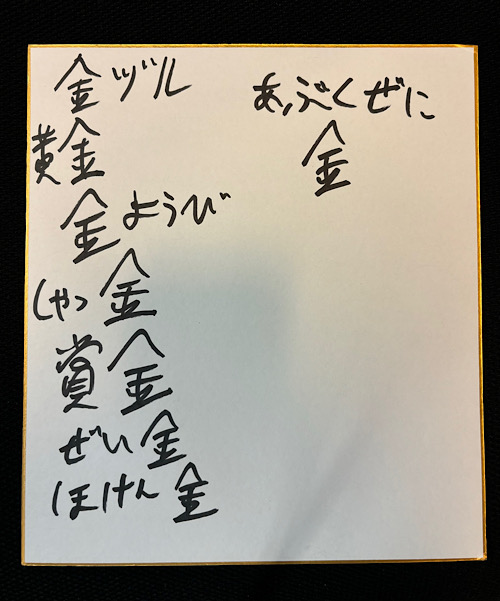 金ヅル
黄金
金ようび
しゃっ金
賞金
ぜい金
ほけん金
あぶくぜに
金